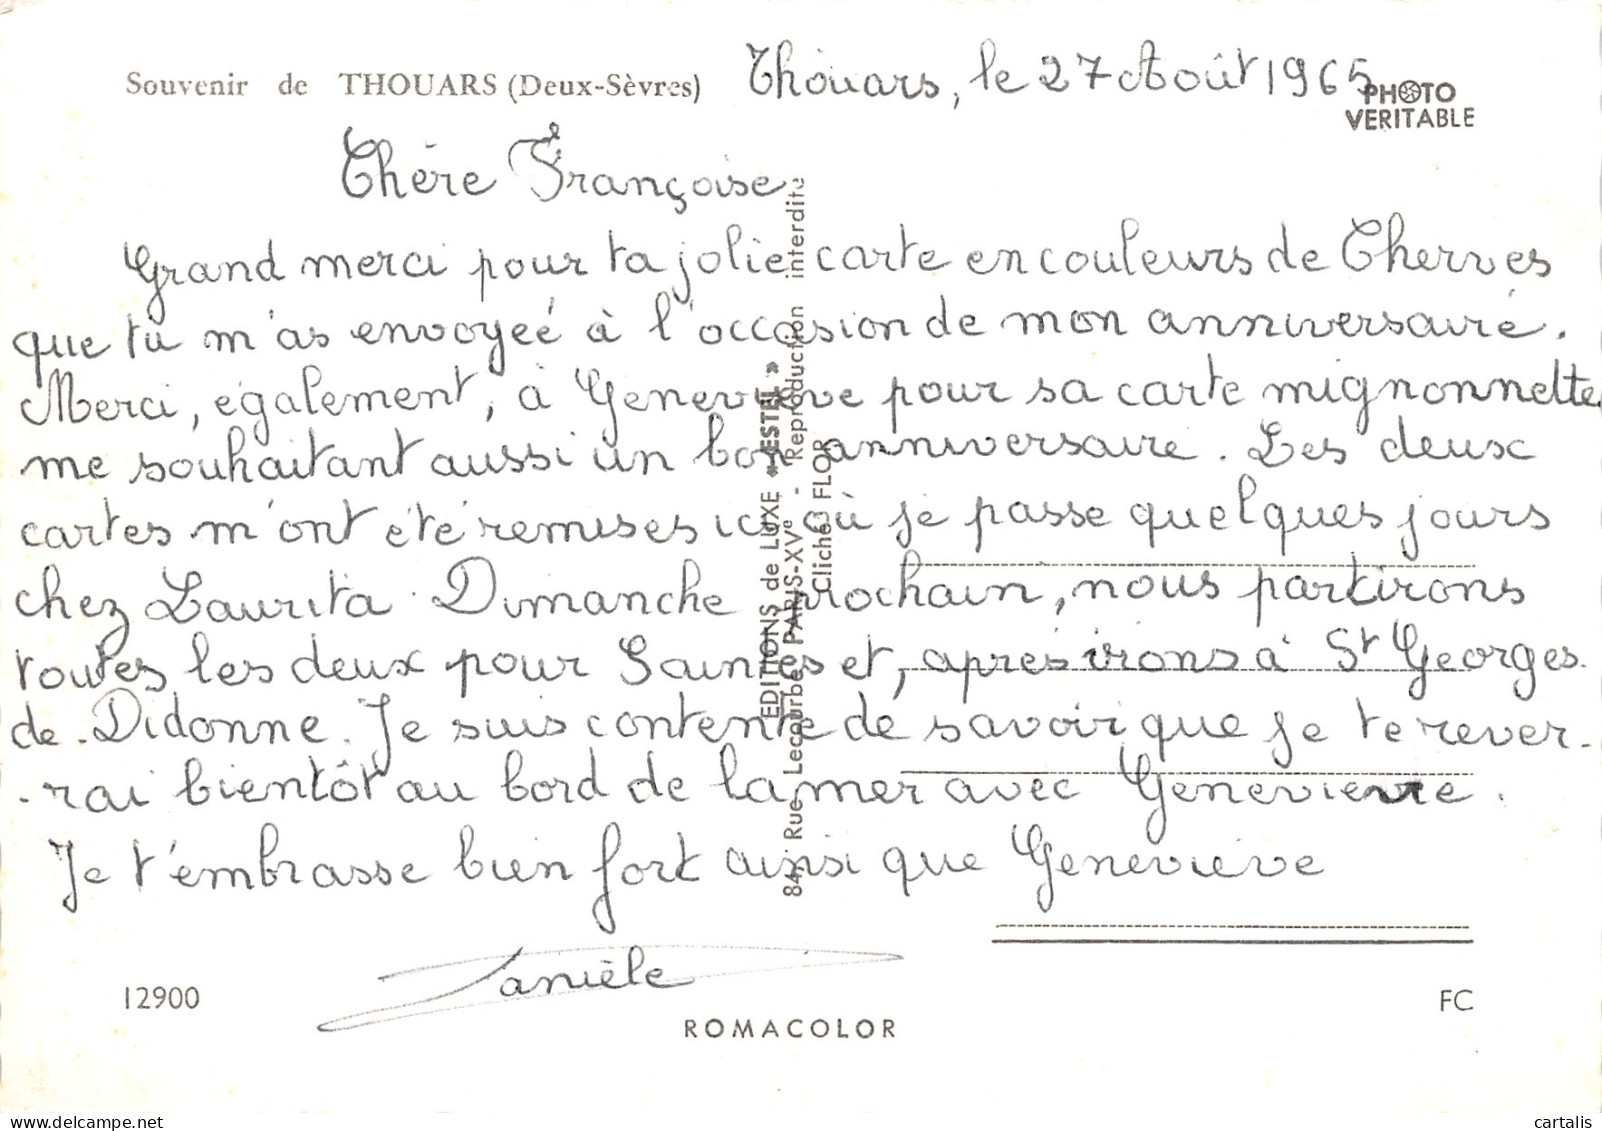 Souvenir de THOUARS (Deux-Sèvres)
Thouars, le 27 Août 1965
PHOTO
VERITABLE
Chère Françoise,
Grand merci pour ta jolie carte en couleurs de Cherves
que tu m'as envoyeé à l'occasion de mon anniversaire.
Merci, également, à Geneviève pour sa carte mignonnette
me souhaitant aussi un bon anniversaire. Les deux
cartes m'ont été remises ici où je passe quelques jours
chez Laurita. Dimanche prochain, nous partirons
toutes les deux pour Saintes et, après irons à St Georges
de Didonne. Je suis contente de savoir que je te rever-
-rai bientôt au bord de la mer avec Geneviève.
Je t'embrasse bien fort ainsi que Geneviève
Danièle
EDITIONS de LUXE « ESTEL »
84, Rue Lecourbe, PARIS-XVe - Reproduction interdite
Cliché FLOR
12900
ROMACOLOR
FC
cartalis
delcampe.net